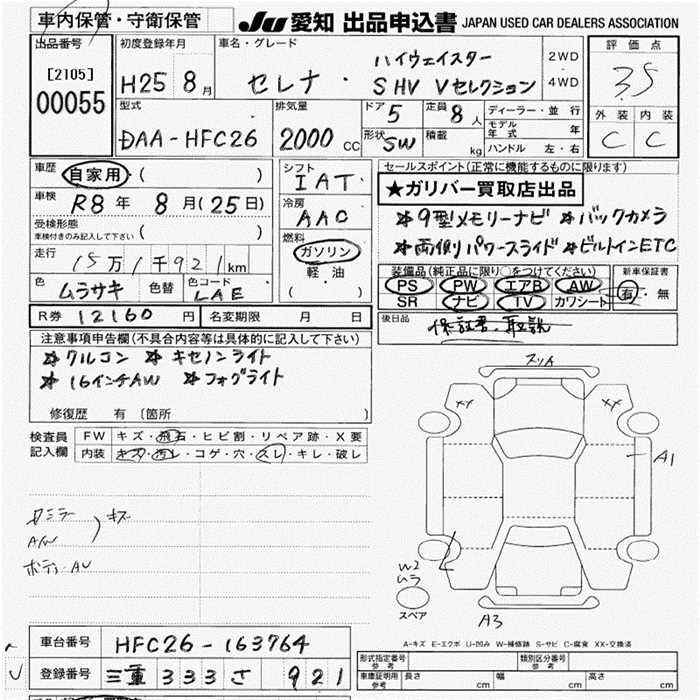 車内保管・守衛保管 JU 愛知 出品申込書 JAPAN USED CAR DEALERS ASSOCIATION
出品番号 初度登録年月 車名・グレード 評価点
[2105]
00055
H25 8月 セレナ・ハイウェイスター 2WD
S HV Vセレクション 4WD
3.5
外装 内装
C C
型式 排気量 ドア 5 定員 8人 ディーラー・並行
DAA-HFC26 2000cc 形状 SW 積載 kg モデル年式 年
ハンドル 左・右
車歴 自家用・( )
車検 R8年 8月(25日)
受検形態
車検付きのみ記入して下さい ( )
走行 15万1千921km
色 ムラサキ 色替 色コード LAE
シフト IAT
冷房 AAC
燃料 ガソリン
軽・油
( )
セールスポイント(正常に機能するものに限ります)
★ガリバー買取店出品
※9型メモリーナビ ※バックカメラ
※両側パワースライド ※ビルトインETC
装備品(純正品に限り○をつけてください) 新車保証書
PS PW エアB AW 有・無
SR ナビ TV カワシート
R券 12160円 名変期限 月 日
後日品 保証書、取説
注意事項申告欄(不具合内容等は具体的に記入して下さい)
※クルコン ※キセノンライト
※16インチAW ※フォグライト
修復歴 有 〔箇所 〕
検査員記入欄 FW キズ・飛石・ヒビ割・リペア跡・X要
内装 キズ・汚レ・コゲ・穴・スレ・キレ・破レ
キズ
A/W
スリA
XX XX
A1
W2
ムラ
スペア
A3
A-キズ E-エクボ U-凹み W-補修跡 S-サビ C-腐食 XX-交換済
車台番号 HFC26-163764
登録番号 三重 333 さ 921
形式指定番号 参考 類別区分番号 参考
車庫証明用 参考 長さ cm 幅 cm 高さ cm